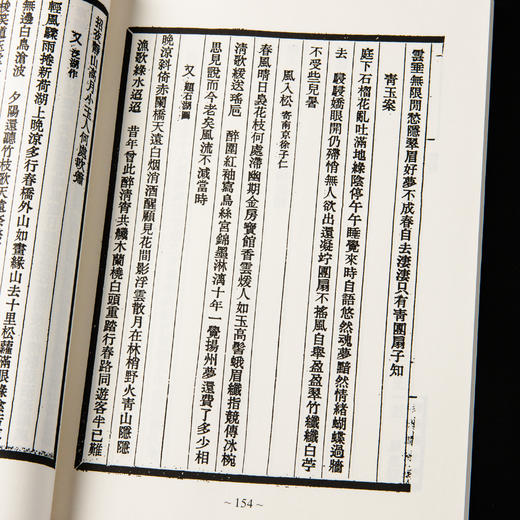 雲垂無限閒愁隱翠眉好夢不成春自去淒淒只有青團扇子知
青玉案
庭下石榴花亂吐滿地綠陰停午午睡覺來時自語悠然魂夢黯然情緒蝴蝶過牆
去　嬌眼開仍殢悄無人欲出還凝竚團扇不搖風自舉盈盈翠竹纖纖白苧
不受些兒暑
風入松 寄南京徐子仁
春風晴日裊花枝何處滯幽期金房寶館香雲煖人如玉高髻蛾眉纖指競傳冰椀
清歌緩送瑤巵　醉圍紅袖寫烏絲宮錦墨淋漓十年一覺揚州夢還費了多少相
思見說而今老矣風流不減當時
又 題石湖圖
晚涼斜倚赤闌橋天遠白烟消酒醒顧見花間影浮雲散月在林梢野火青山隱隱
漁歌綠水迢迢　昔年曾此醉清宵共艤木蘭橈白頭重踏行春路同遊客半已難
招
又
輕風驟雨捲新荷湖上晚涼多行春橋外山如畫緣山去十里松蘿滿眼綠陰
無邊白鳥滄波　夕陽還聽竹枝歌天遠
~154~